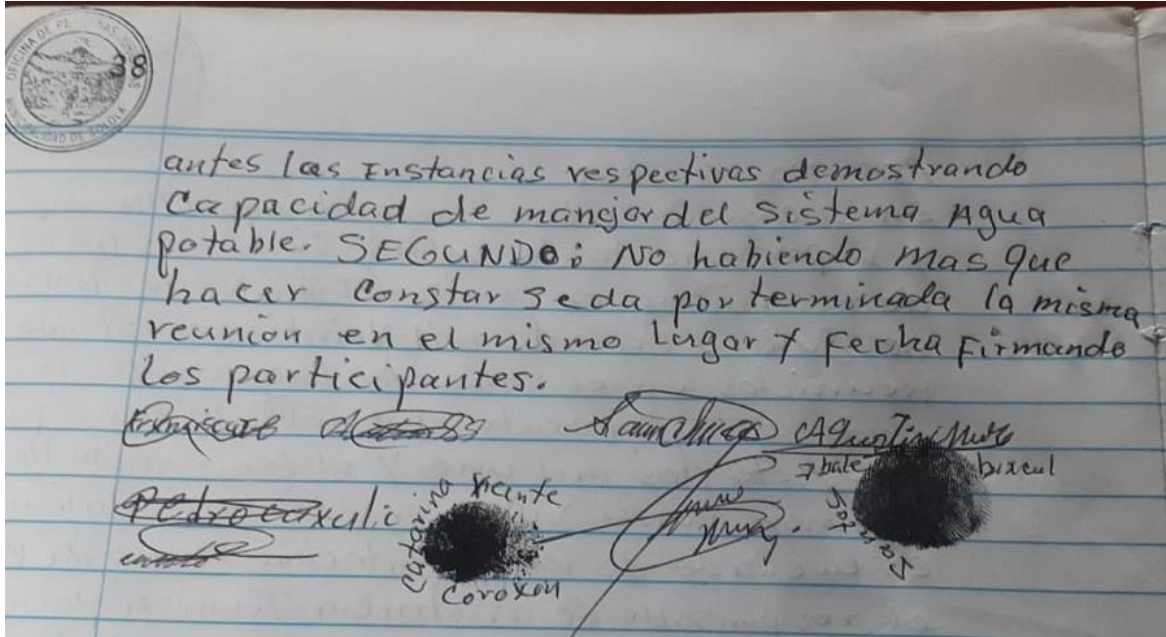 38
OFICINA DE
MUNICIPALIDAD DE SOLOLA
antes las Instancias respectivas demostrando
Capacidad de manejar del Sistema Agua
potable. SEGUNDO: No habiendo mas que
hacer Constar se da por terminada la misma
reunion en el mismo Lugar y Fecha Firmando
los participantes.
Agustin
bixcul
Santos
Pedro cuxulic
Catarina Vicente
Coroxon